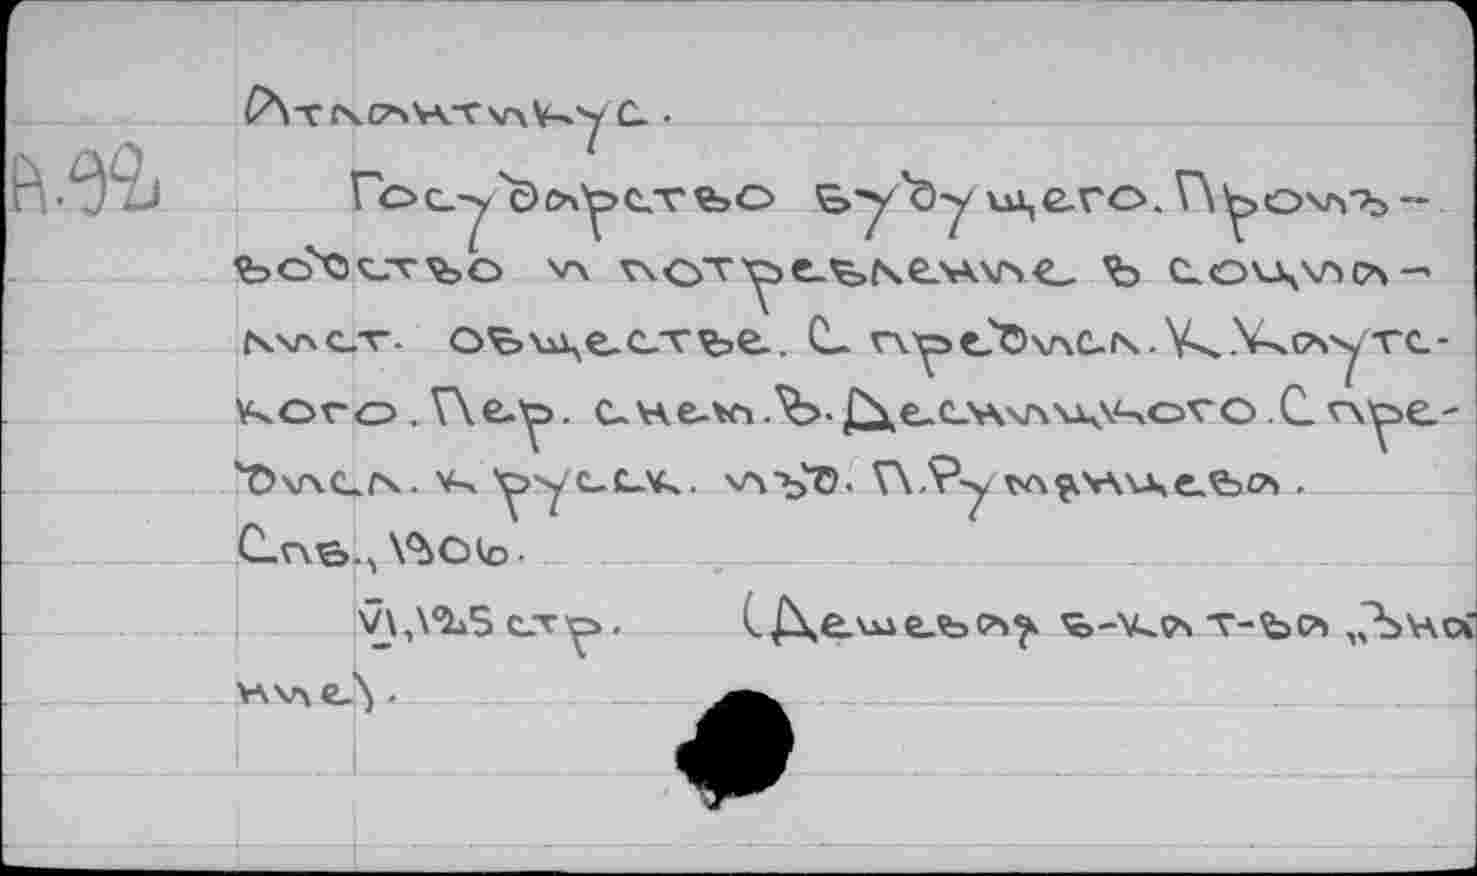 Атлантикус.
А.92
Государство будущего. Произ-
водство и потребление в социа-
лист. обществе. С предисл. К. Каутс-
кого. Пер. с нем. В. Десницкого. С пре-
дисл. к русск. изд. П. Румянцева.
Спб., 1906.
VI,195 стр. (Дешевая б-ка т-ва „Зна
ние").